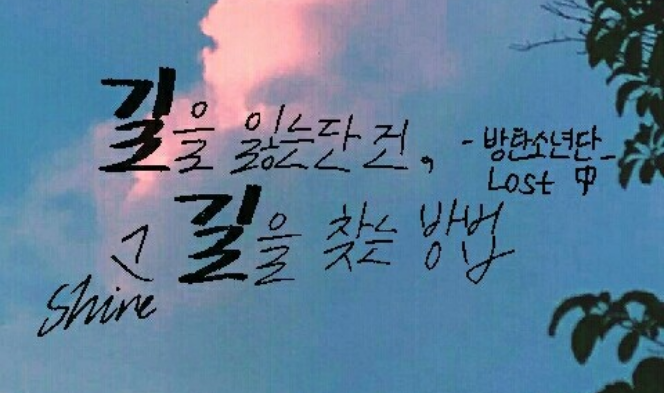 길을 잃는단 건,
그 길을 찾는 방법
- 방탄소년단 -
Lost 中
Shine